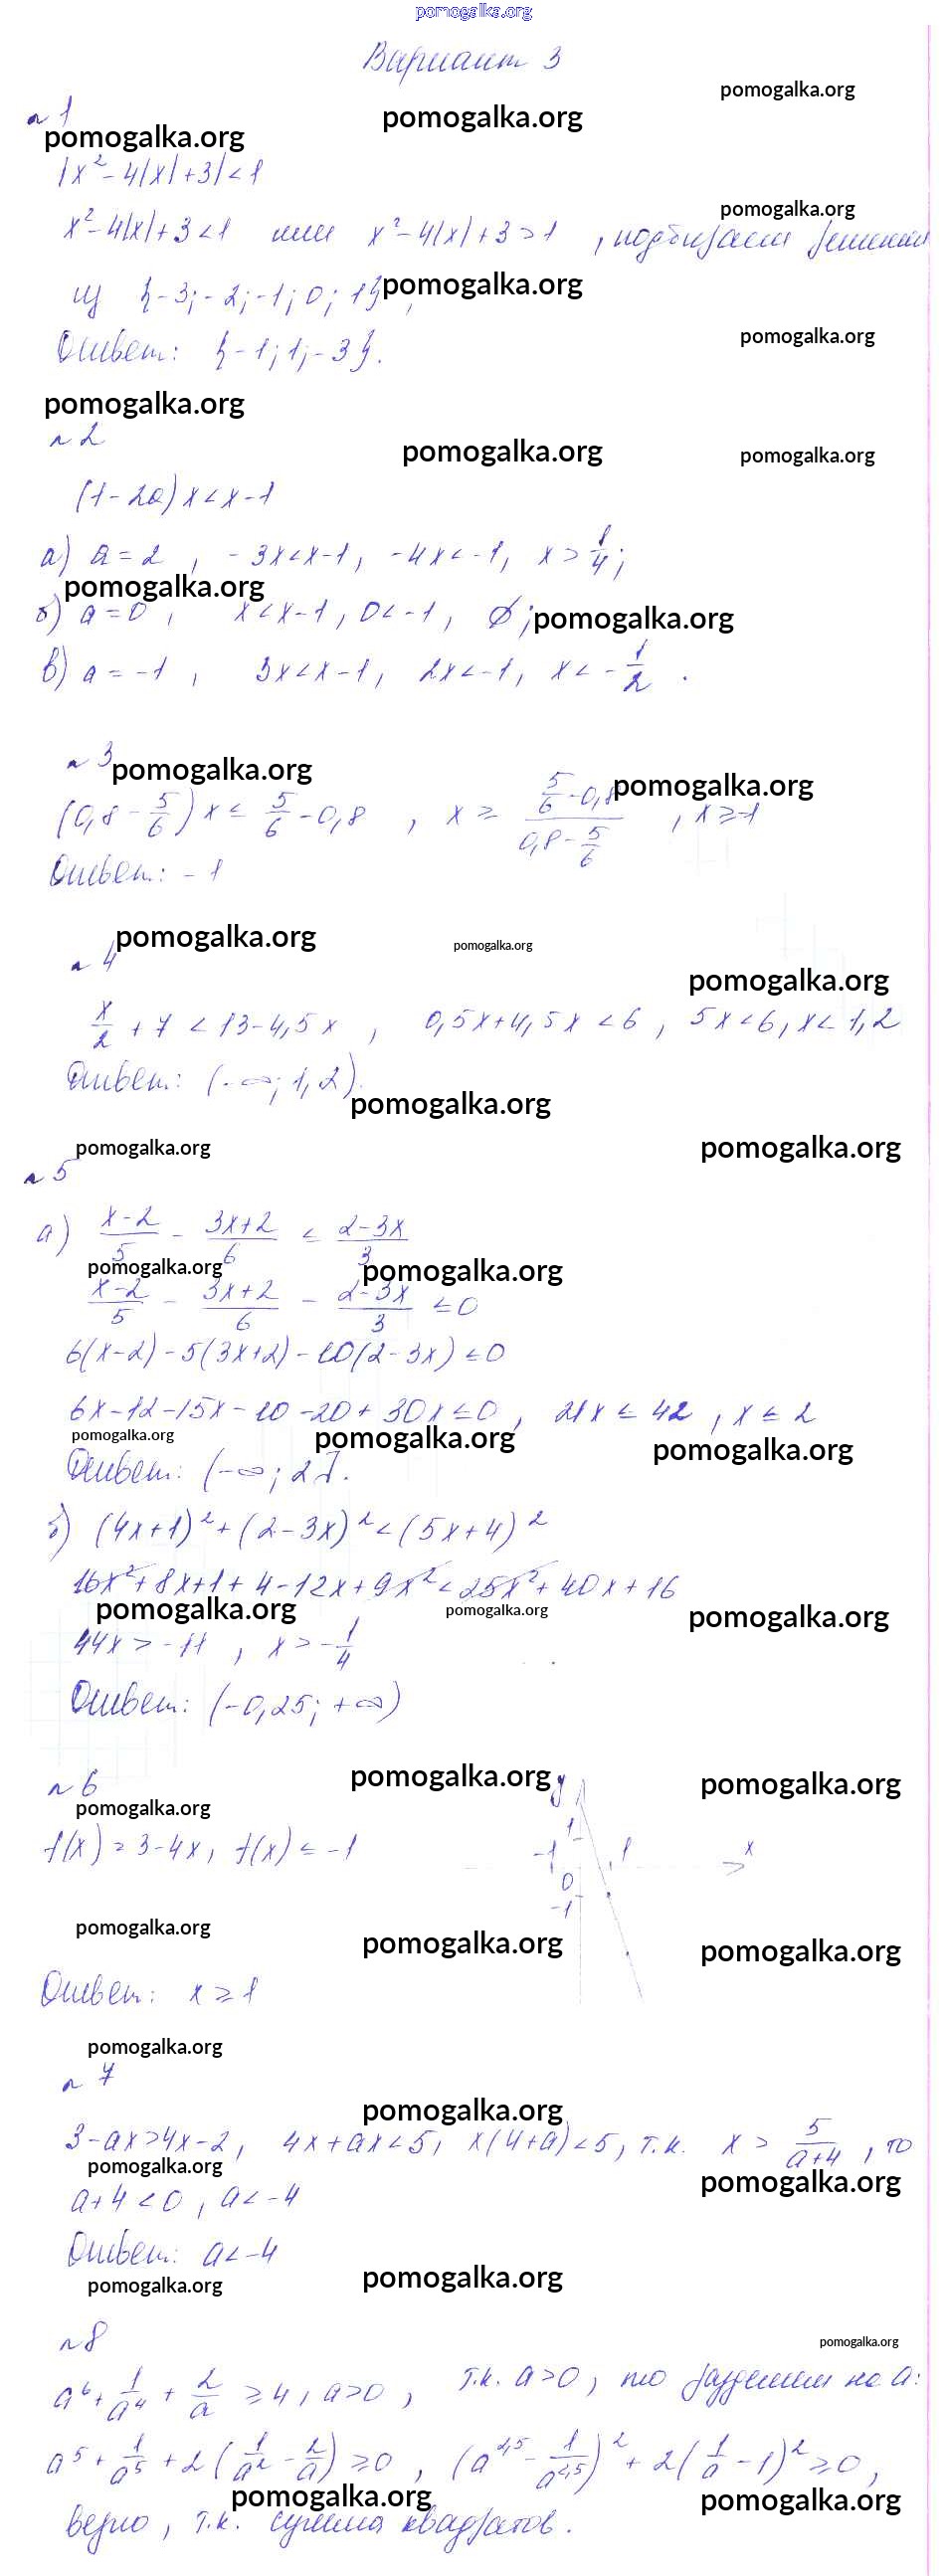 pomogalka.org
Вариант 3
pomogalka.org
pomogalka.org
№1
pomogalka.org
|x² - 4|x| + 3| < 1
pomogalka.org
x² - 4|x| + 3 < 1 или x² - 4|x| + 3 > 1, подбираем решения
из {-3; -2; -1; 0; 1},
pomogalka.org
Ответ: {-1; 1; -3}.
pomogalka.org
pomogalka.org
№2
pomogalka.org
pomogalka.org
(1 - 2a)x < x - 1
а) a = 2, -3x < x - 1, -4x < -1, x > 1/4;
pomogalka.org
б) a = 0, x < x - 1, 0 < -1, ∅;
pomogalka.org
в) a = -1, 3x < x - 1, 2x < -1, x < -1/2.
№3
pomogalka.org
pomogalka.org
(0,8 - 5/6)x ≤ 5/6 - 0,8, x ≥ (5/6 - 0,8)/(0,8 - 5/6), x ≥ -1
Ответ: -1
pomogalka.org
pomogalka.org
№4
pomogalka.org
x/2 + 7 < 13 - 4,5x, 0,5x + 4,5x < 6, 5x < 6, x < 1,2
Ответ: (-∞; 1,2).
pomogalka.org
pomogalka.org
pomogalka.org
№5
а) (x-2)/5 - (3x+2)/6 ≤ (2-3x)/3
pomogalka.org
pomogalka.org
(x-2)/5 - (3x+2)/6 - (2-3x)/3 ≤ 0
6(x-2) - 5(3x+2) - 10(2-3x) ≤ 0
6x - 12 - 15x - 10 - 20 + 30x ≤ 0, 21x ≤ 42, x ≤ 2
pomogalka.org
pomogalka.org
pomogalka.org
Ответ: (-∞; 2].
б) (4x+1)² + (2-3x)² < (5x+4)²
16x² + 8x + 1 + 4 - 12x + 9x² < 25x² + 40x + 16
pomogalka.org
pomogalka.org
pomogalka.org
44x > -11, x > -1/4
Ответ: (-0,25; +∞)
№6
pomogalka.org
y
pomogalka.org
pomogalka.org
f(x) = 3 - 4x, f(x) ≤ -1
1
-1
1
x
0
-1
pomogalka.org
pomogalka.org
pomogalka.org
Ответ: x ≥ 1
pomogalka.org
№7
pomogalka.org
3 - ax > 4x - 2, 4x + ax < 5, x(4+a) < 5, т.к. x > 5/(a+4), то
pomogalka.org
pomogalka.org
a + 4 < 0, a < -4
Ответ: a < -4
pomogalka.org
pomogalka.org
№8
pomogalka.org
a⁶ + 1/a⁴ + 2/a ≥ 4, a > 0, т.к. a > 0, то разделим на a:
a⁵ + 1/a⁵ + 2(1/a² - 2/a) ≥ 0, (a^2,5 - 1/a^2,5)² + 2(1/a - 1)² ≥ 0,
pomogalka.org
pomogalka.org
верно, т.к. сумма квадратов.